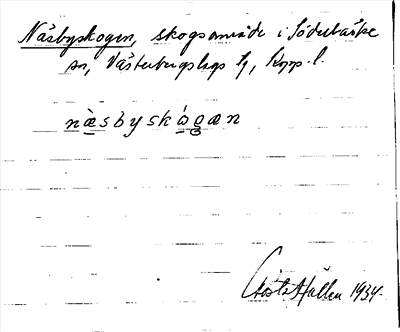 Näsbyskogen, skogsområde i Söderbärke
sn, Västerbergslags tg, Kopp. l.
næ̀sbyskógæn
Gösta Hallén 1934.